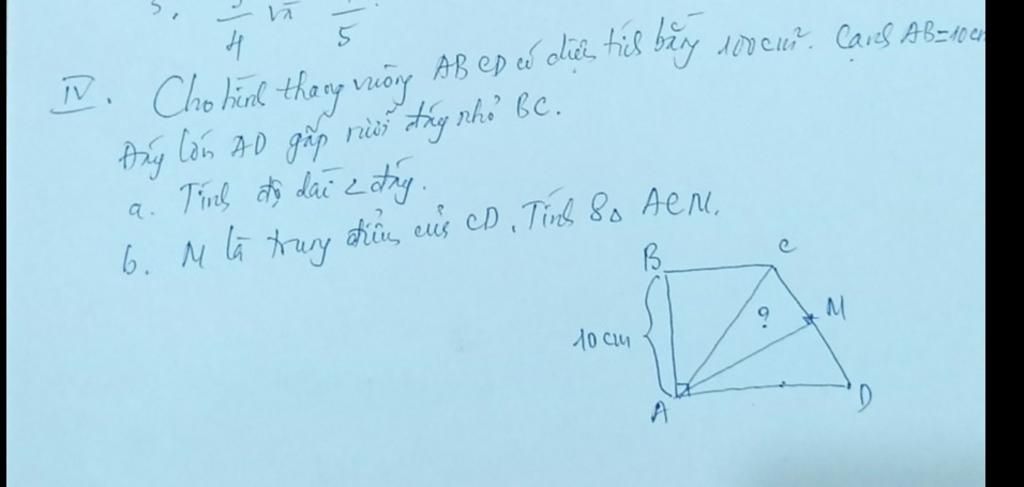 4 và 5
IV. Cho hình thang vuông ABCD có diện tích bằng 100cm². Cạnh AB=10cm
Đáy lớn AD gấp rưỡi đáy nhỏ BC.
a. Tính độ dài 2 đáy.
b. M là trung điểm của CD. Tính SΔ ACM.
B C
? M
10 cm
A D